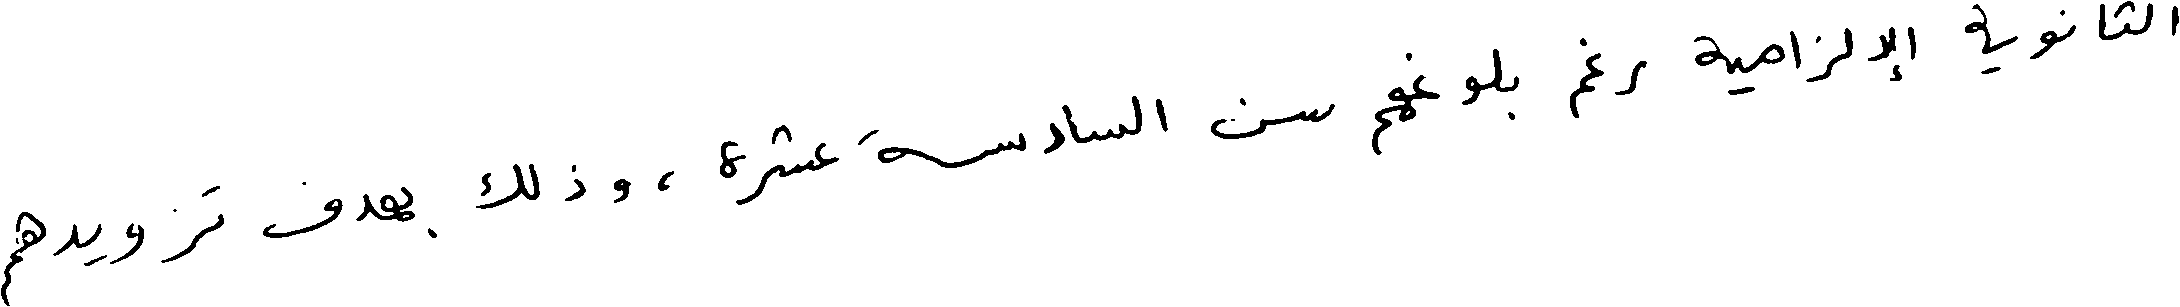 الثانوي الإلزامية رغم بلوغهم سن السادسة عشرة ، وذلك بهدف تزويدهم